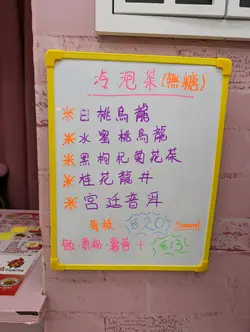 冷泡茶(無糖)
※白桃烏龍
※水蜜桃烏龍
※黑枸杞菊花茶
※桂花龍井
※宮廷普洱
每枝 $20 500ml
飯·意粉·薯蓉 + $13